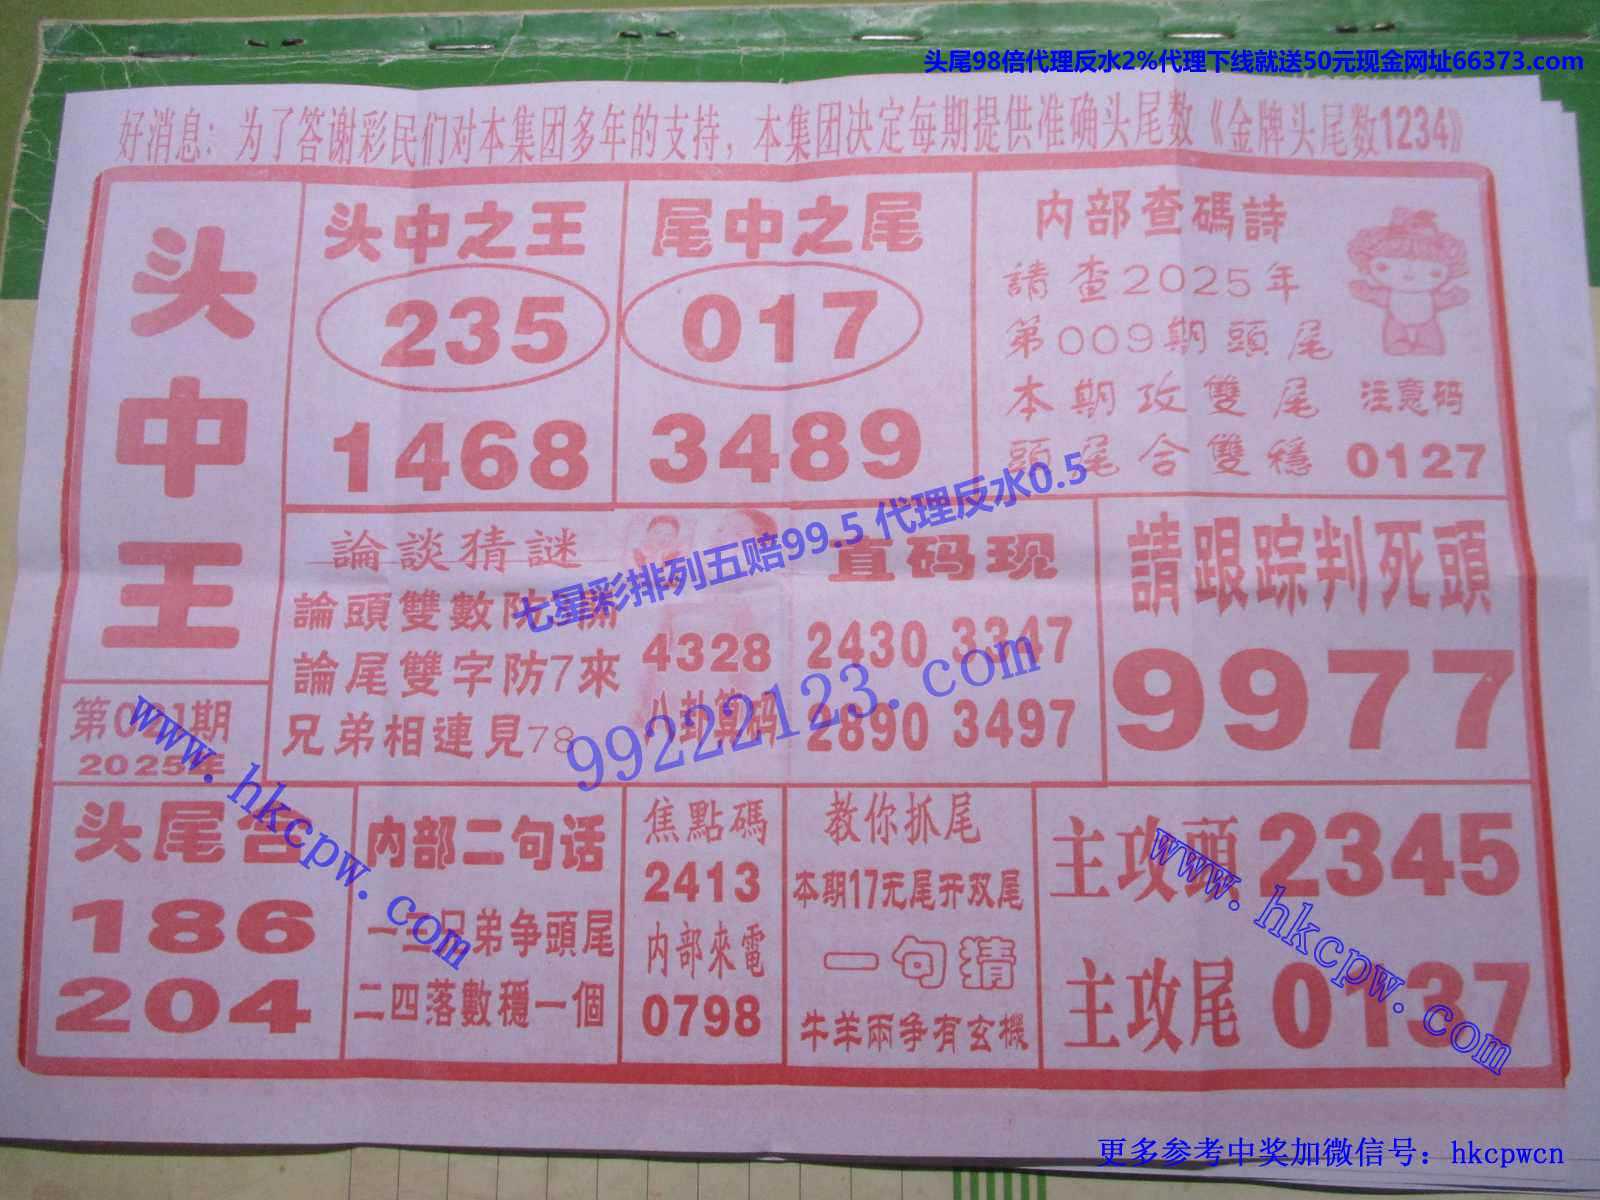 头尾98倍代理反水2%代理下线就送50元现金网址66373.com
好消息：为了答谢彩民们对本集团多年的支持，本集团决定每期提供准确头尾数《金牌头尾数1234》
头中王
第021期
2025年
头中之王
235
1468
尾中之尾
017
3489
内部查碼詩
請查2025年
第009期頭尾
本期攻雙尾
頭尾合雙穩
注意码
0127
論談猜謎
論頭雙數防
論尾雙字防7來
兄弟相連見78
4328
八卦算码
直码现
2430 3347
2890 3497
請跟踪判死頭
9977
七星彩排列五赔99.5 代理反水0.5
99222123.com
www.hkcpw.com
头尾合
186
204
内部二句话
一三兄弟争頭尾
二四落數穩一個
焦點碼
2413
内部來電
0798
教你抓尾
本期17无尾开双尾
一句猜
牛羊兩争有玄機
主攻頭 2345
主攻尾 0137
www.hkcpw.com
更多参考中奖加微信号：hkcpwcn